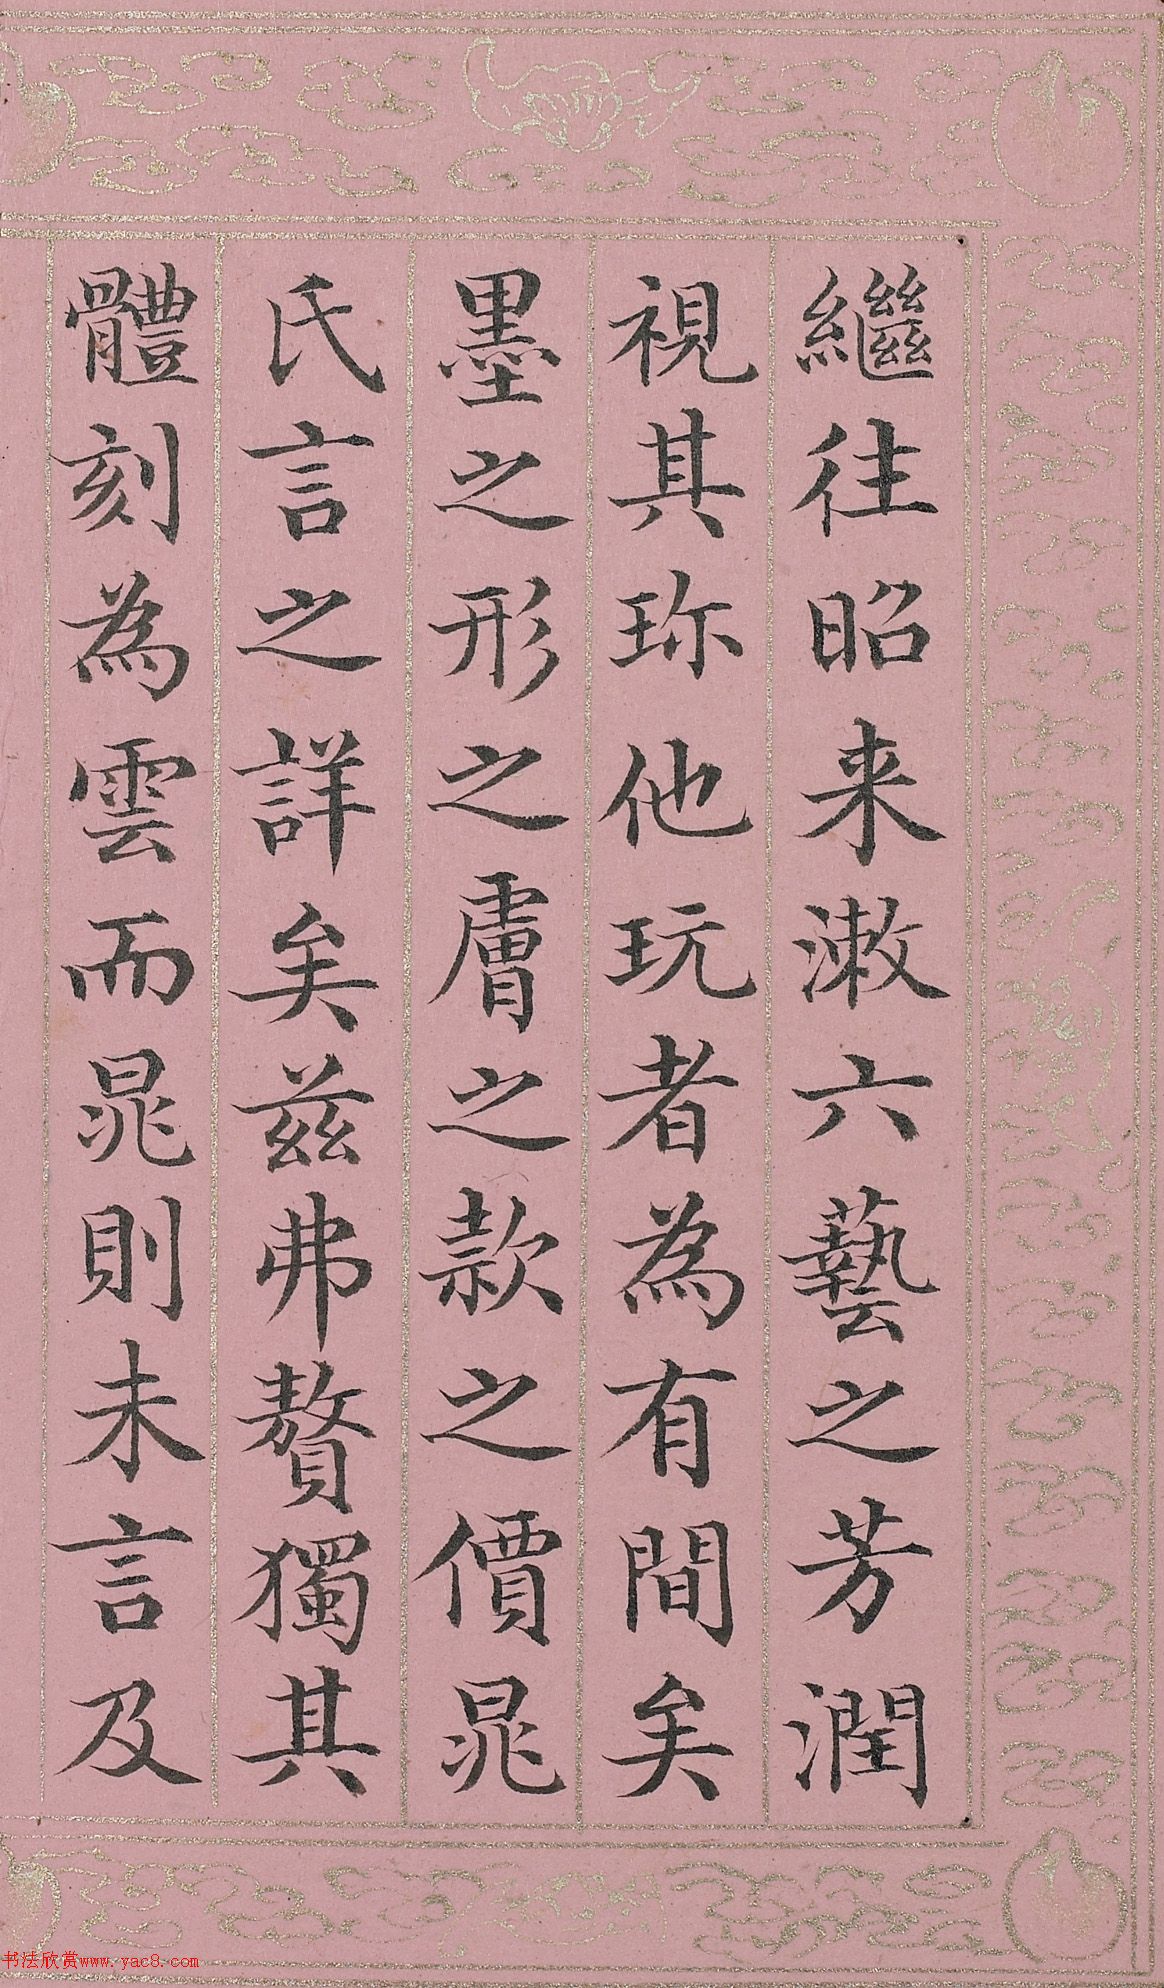 繼往昭来潄六藝之芳潤
視其珎他玩者為有間矣
墨之形之膚之款之價晁
氏言之詳矣兹弗贅獨其
體刻為雲而晁則未言及
书法欣赏www.yac8.com